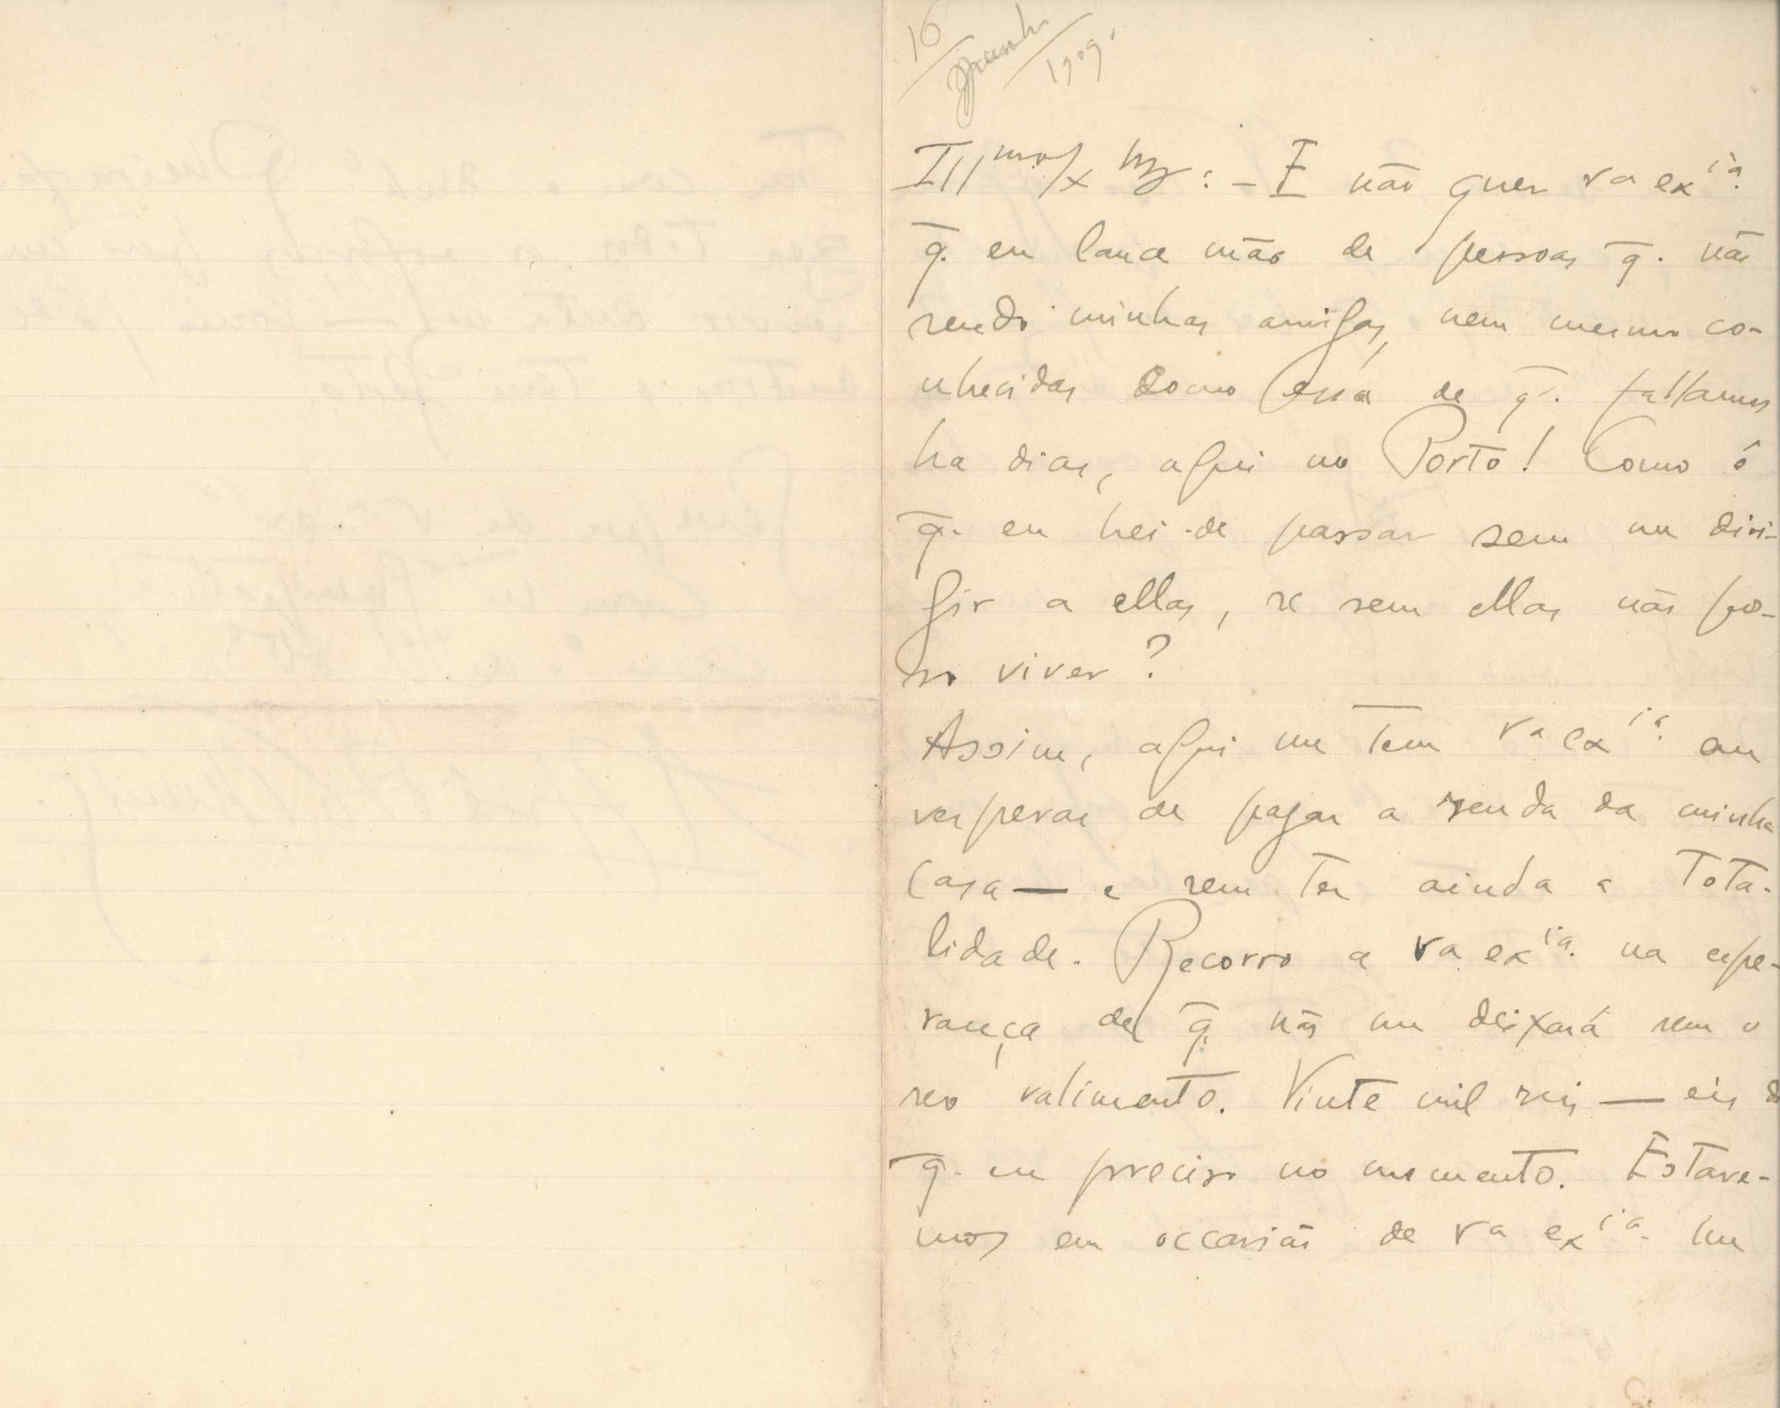 16
Junho
1909.
Illmo/x : – E não quer va exia.
q̄. eu lance mão de pessoas q̄. não
sendo minhas amigas, nem mesmo co-
nhecidas como essa de q̄. fallamos
ha dias, aqui no Porto! Como é
q̄. eu hei-de passar sem me diri-
gir a ellas, se sem ellas não pos-
so viver?
Assim, aqui me tem va exia. em
vesperas de pagar a renda da minha
casa — e sem ter ainda a tota-
lidade. Recorro a va exia. na espe-
rança de q̄. não me deixará sem o
seo valimento. Vinte mil reis — eis o
q̄. eu preciso no momento. Estare-
mos em occasião de va exia. me